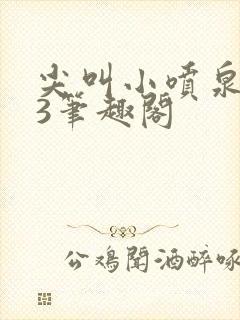 尖叫小喷泉
3笔趣阁
公鸡闻酒醉啄